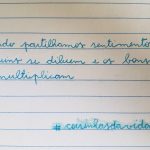 ndo partilhamos sentimentos
uns se diluem e os bons
multiplicam
#coisinhasdavida